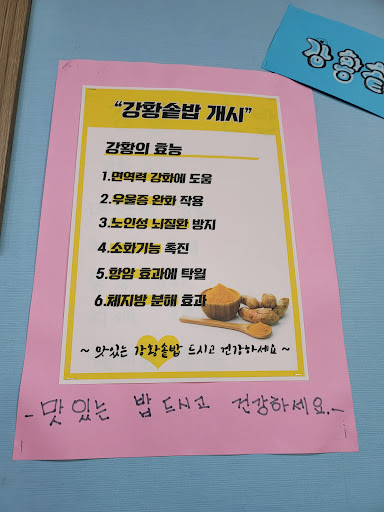 강황솥
"강황솥밥 개시"
강황의 효능
1.면역력 강화에 도움
2.우울증 완화 작용
3.노인성 뇌질환 방지
4.소화기능 촉진
5.항암 효과에 탁월
6.체지방 분해 효과
~ 맛있는 강황솥밥 드시고 건강하세요 ~
-맛있는 밥 드시고 건강하세요.-